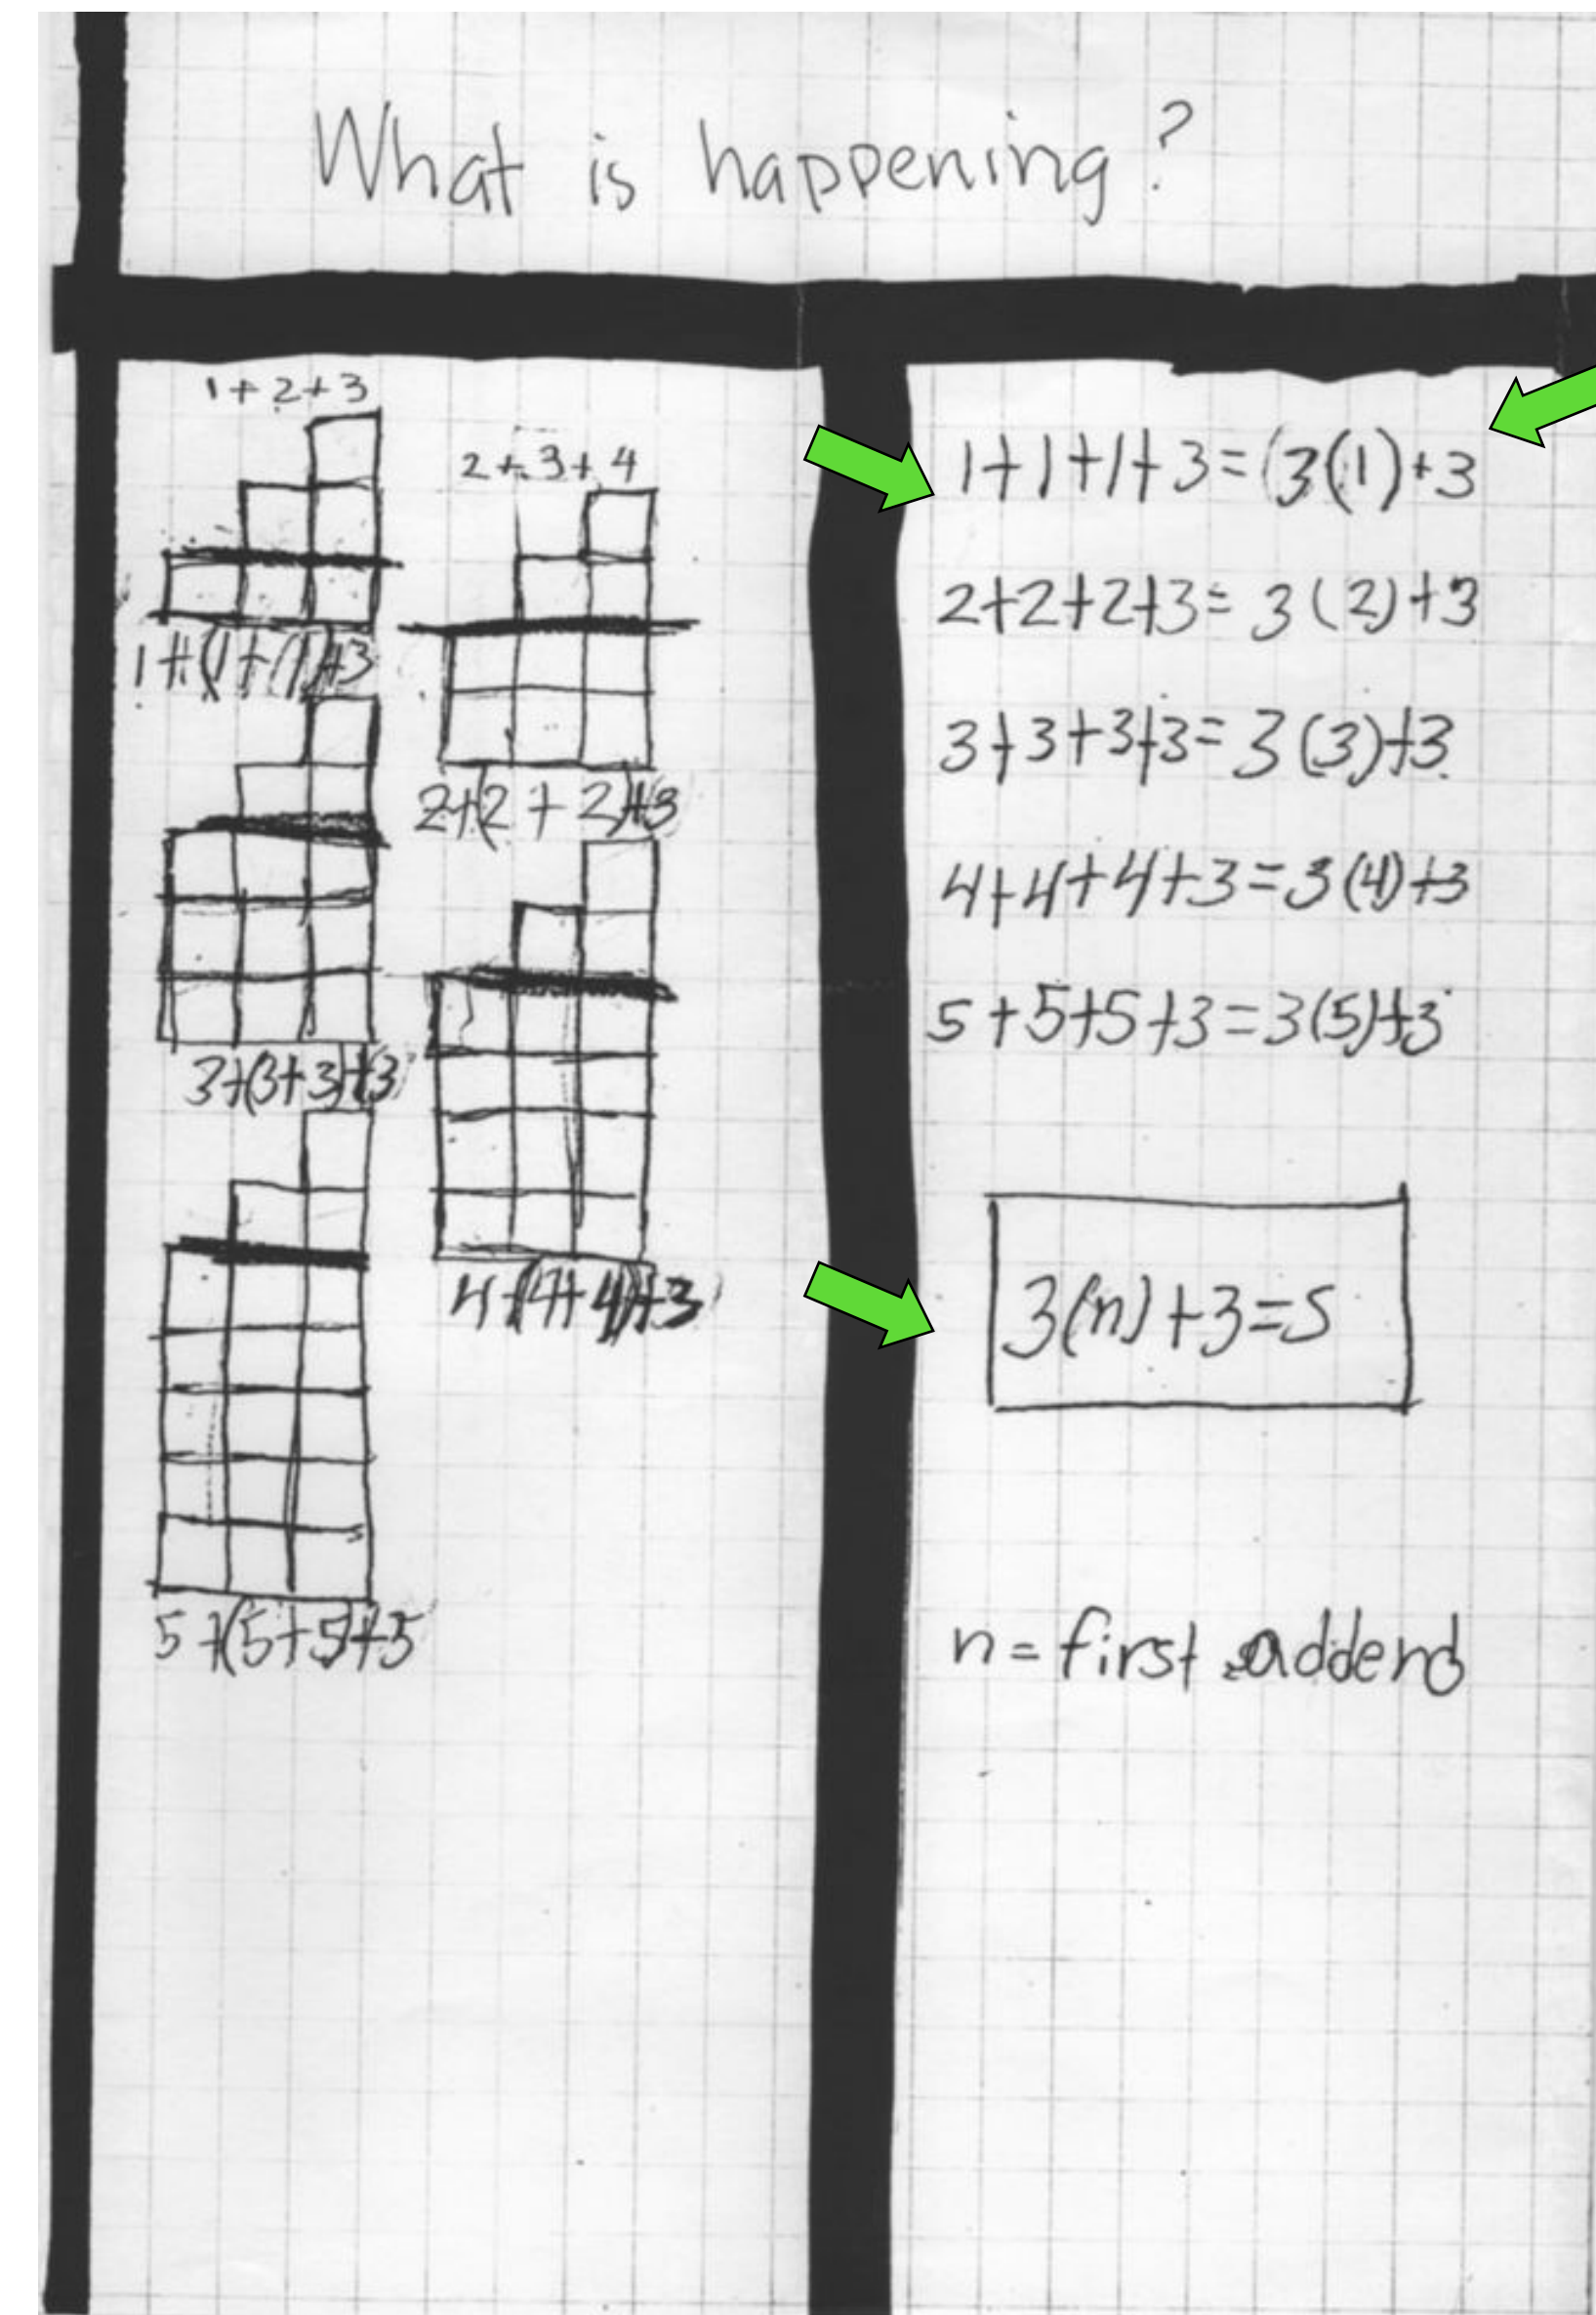 What is happening?
1+2+3
2+3+4
1+(1+1)+3
2+(2+2)+3
3+(3+3)+3
4+(4+4)+3
5+(5+5)+5
1+1+1+3=(3(1)+3
2+2+2+3=3(2)+3
3+3+3+3=3(3)+3
4+4+4+3=3(4)+3
5+5+5+3=3(5)+3
3(n)+3=S
n=first addend